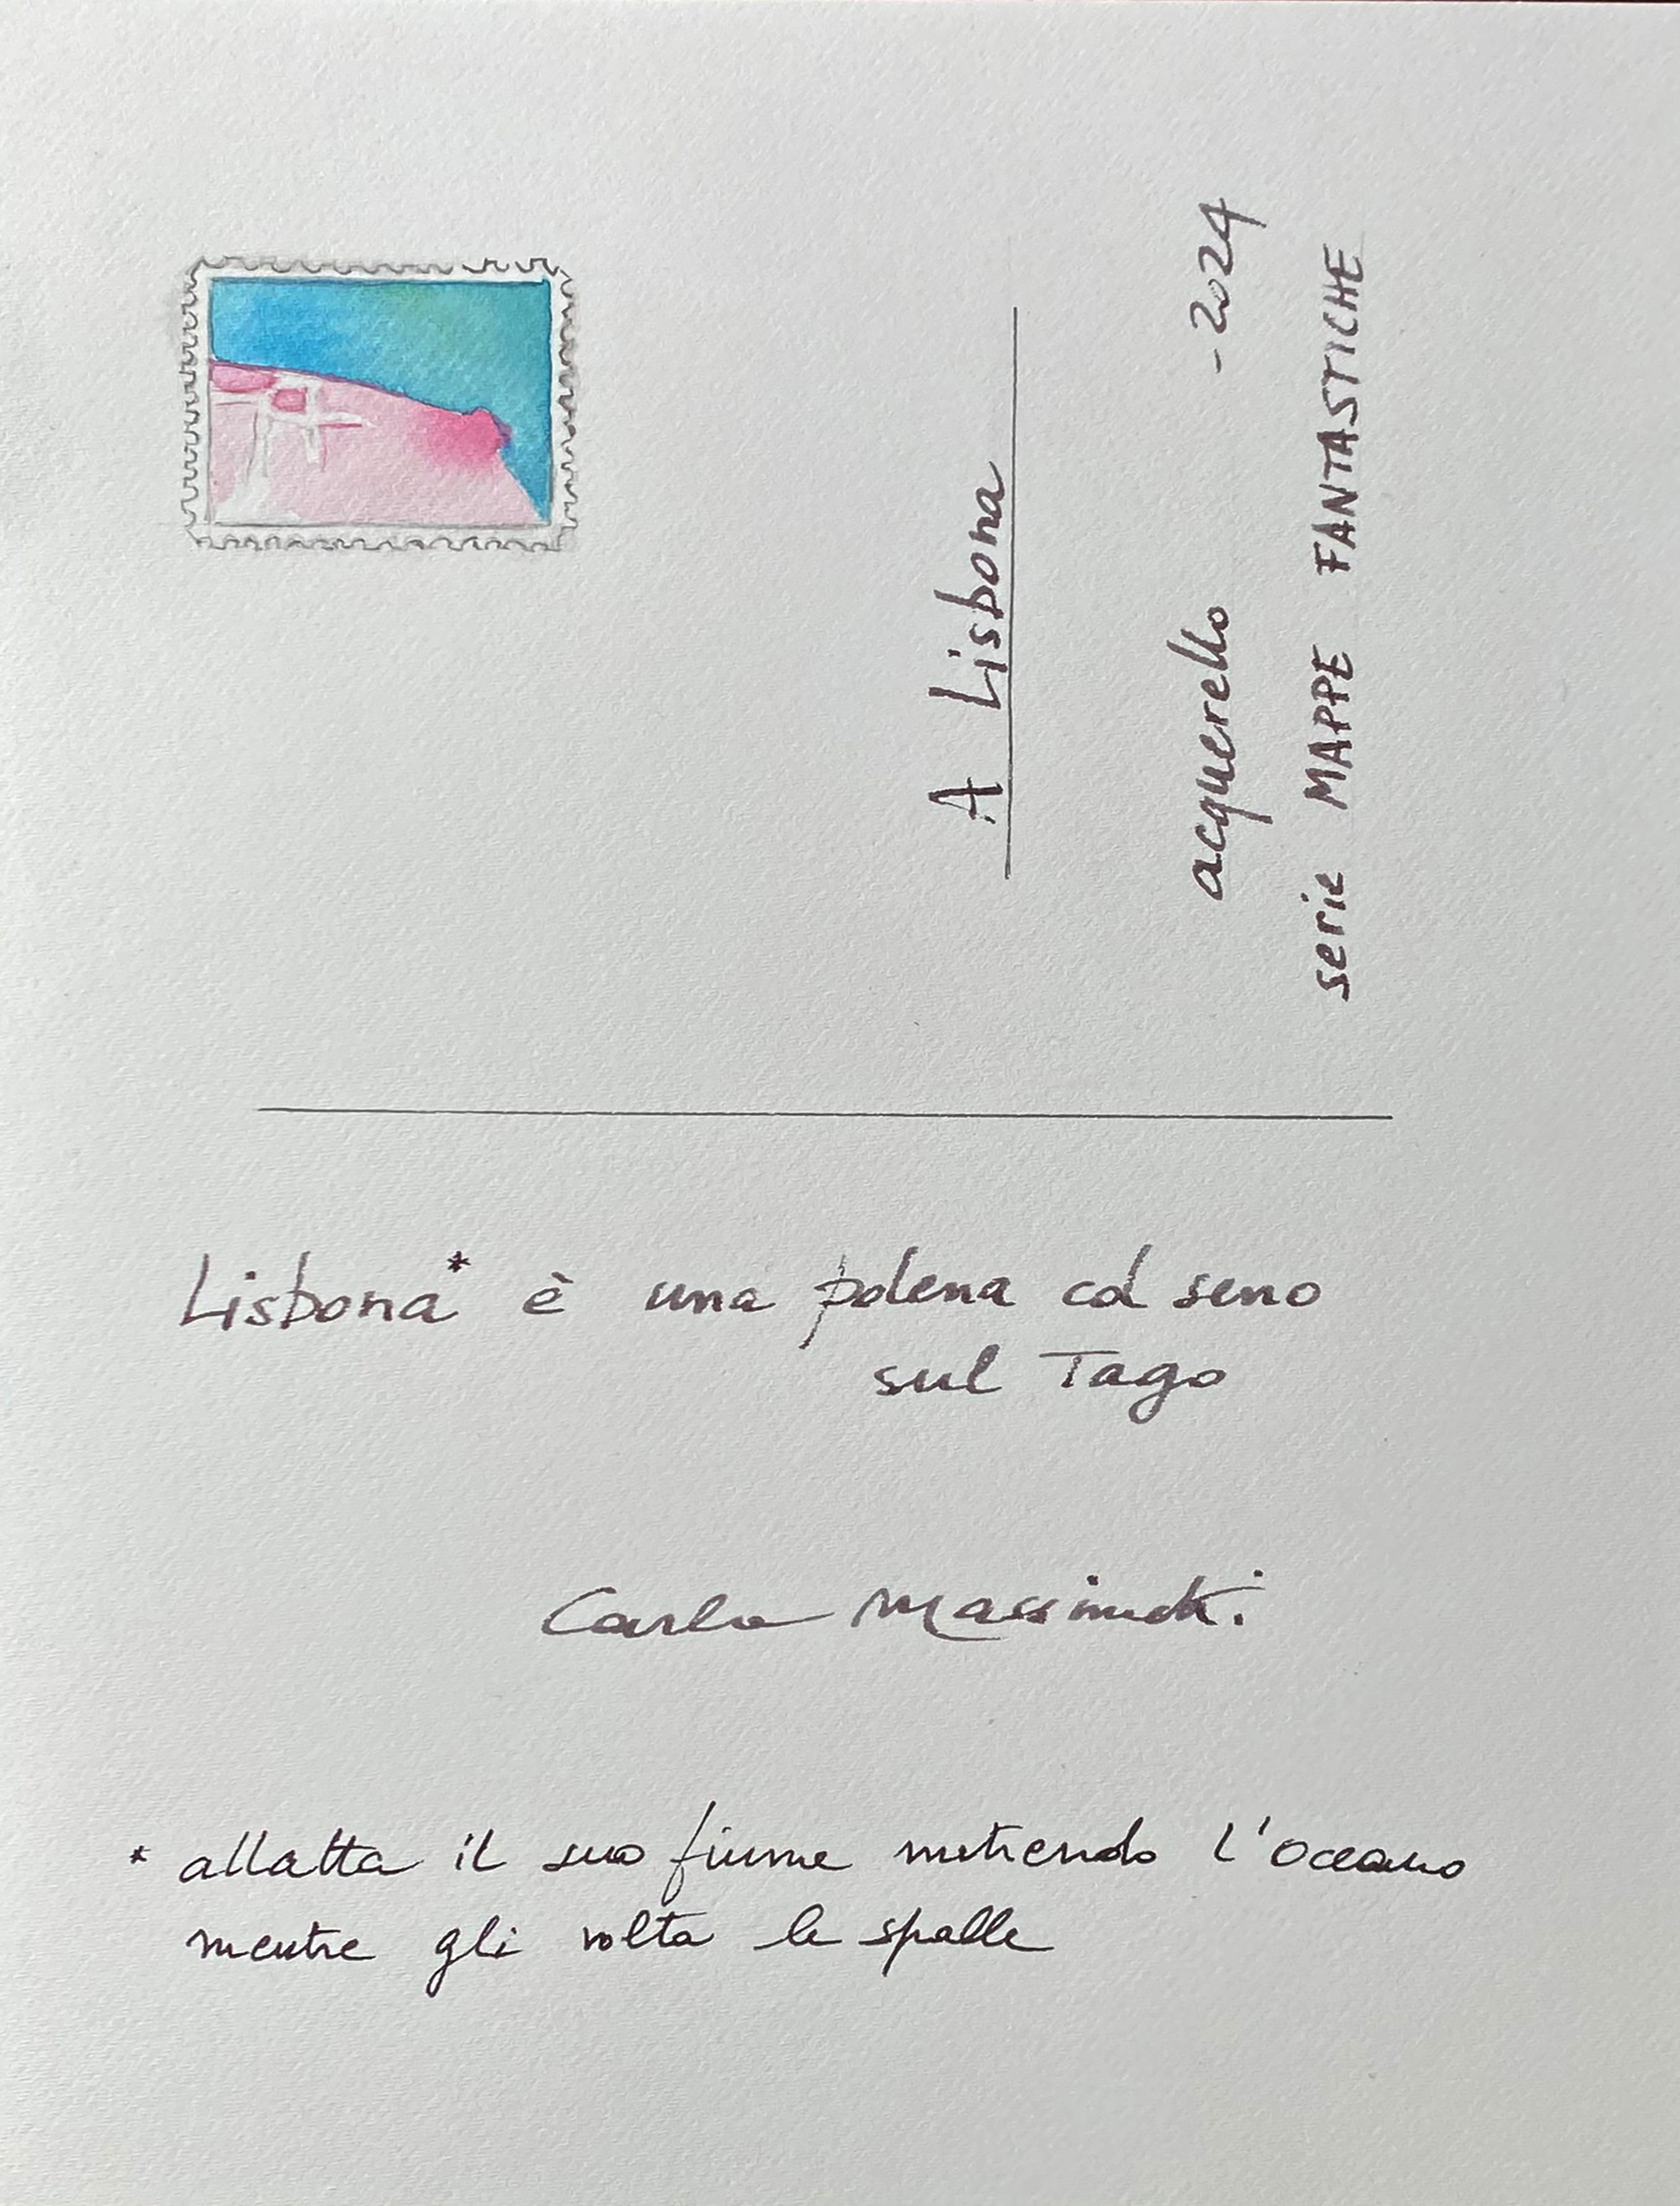 A Lisbona
acquerello - 2024
serie MAPPE FANTASTICHE
Lisbona* è una polena col seno
sul Tago
Carla
* allatta il suo fiume nutrendo l'Oceano
mentre gli volta le spalle